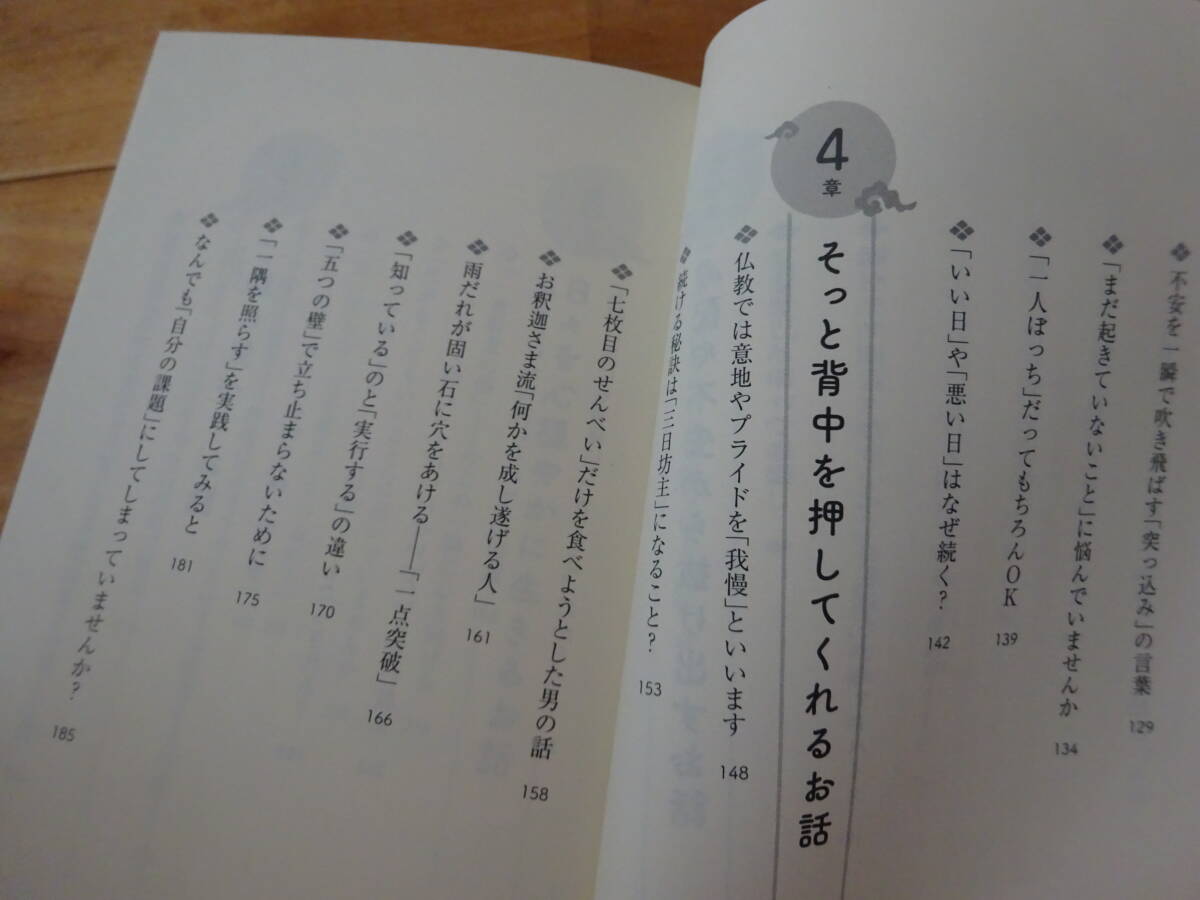 不安を一瞬で吹き飛ばす「突っ込み」の言葉 129
「まだ起きていないこと」に悩んでいませんか 134
「一人ぼっち」だってもちろんOK 139
「いい日」や「悪い日」はなぜ続く? 142
4章 そっと背中を押してくれるお話
仏教では意地やプライドを「我慢」といいます 148
続ける秘訣は「三日坊主」になること? 153
「七枚目のせんべい」だけを食べようとした男の話 158
お釈迦さま流「何かを成し遂げる人」 161
雨だれが固い石に穴をあける――「一点突破」 166
「知っている」のと「実行する」の違い 170
「五つの壁」で立ち止まらないために 175
「一隅を照らす」を実践してみると 181
なんでも「自分の課題」にしてしまっていませんか? 185